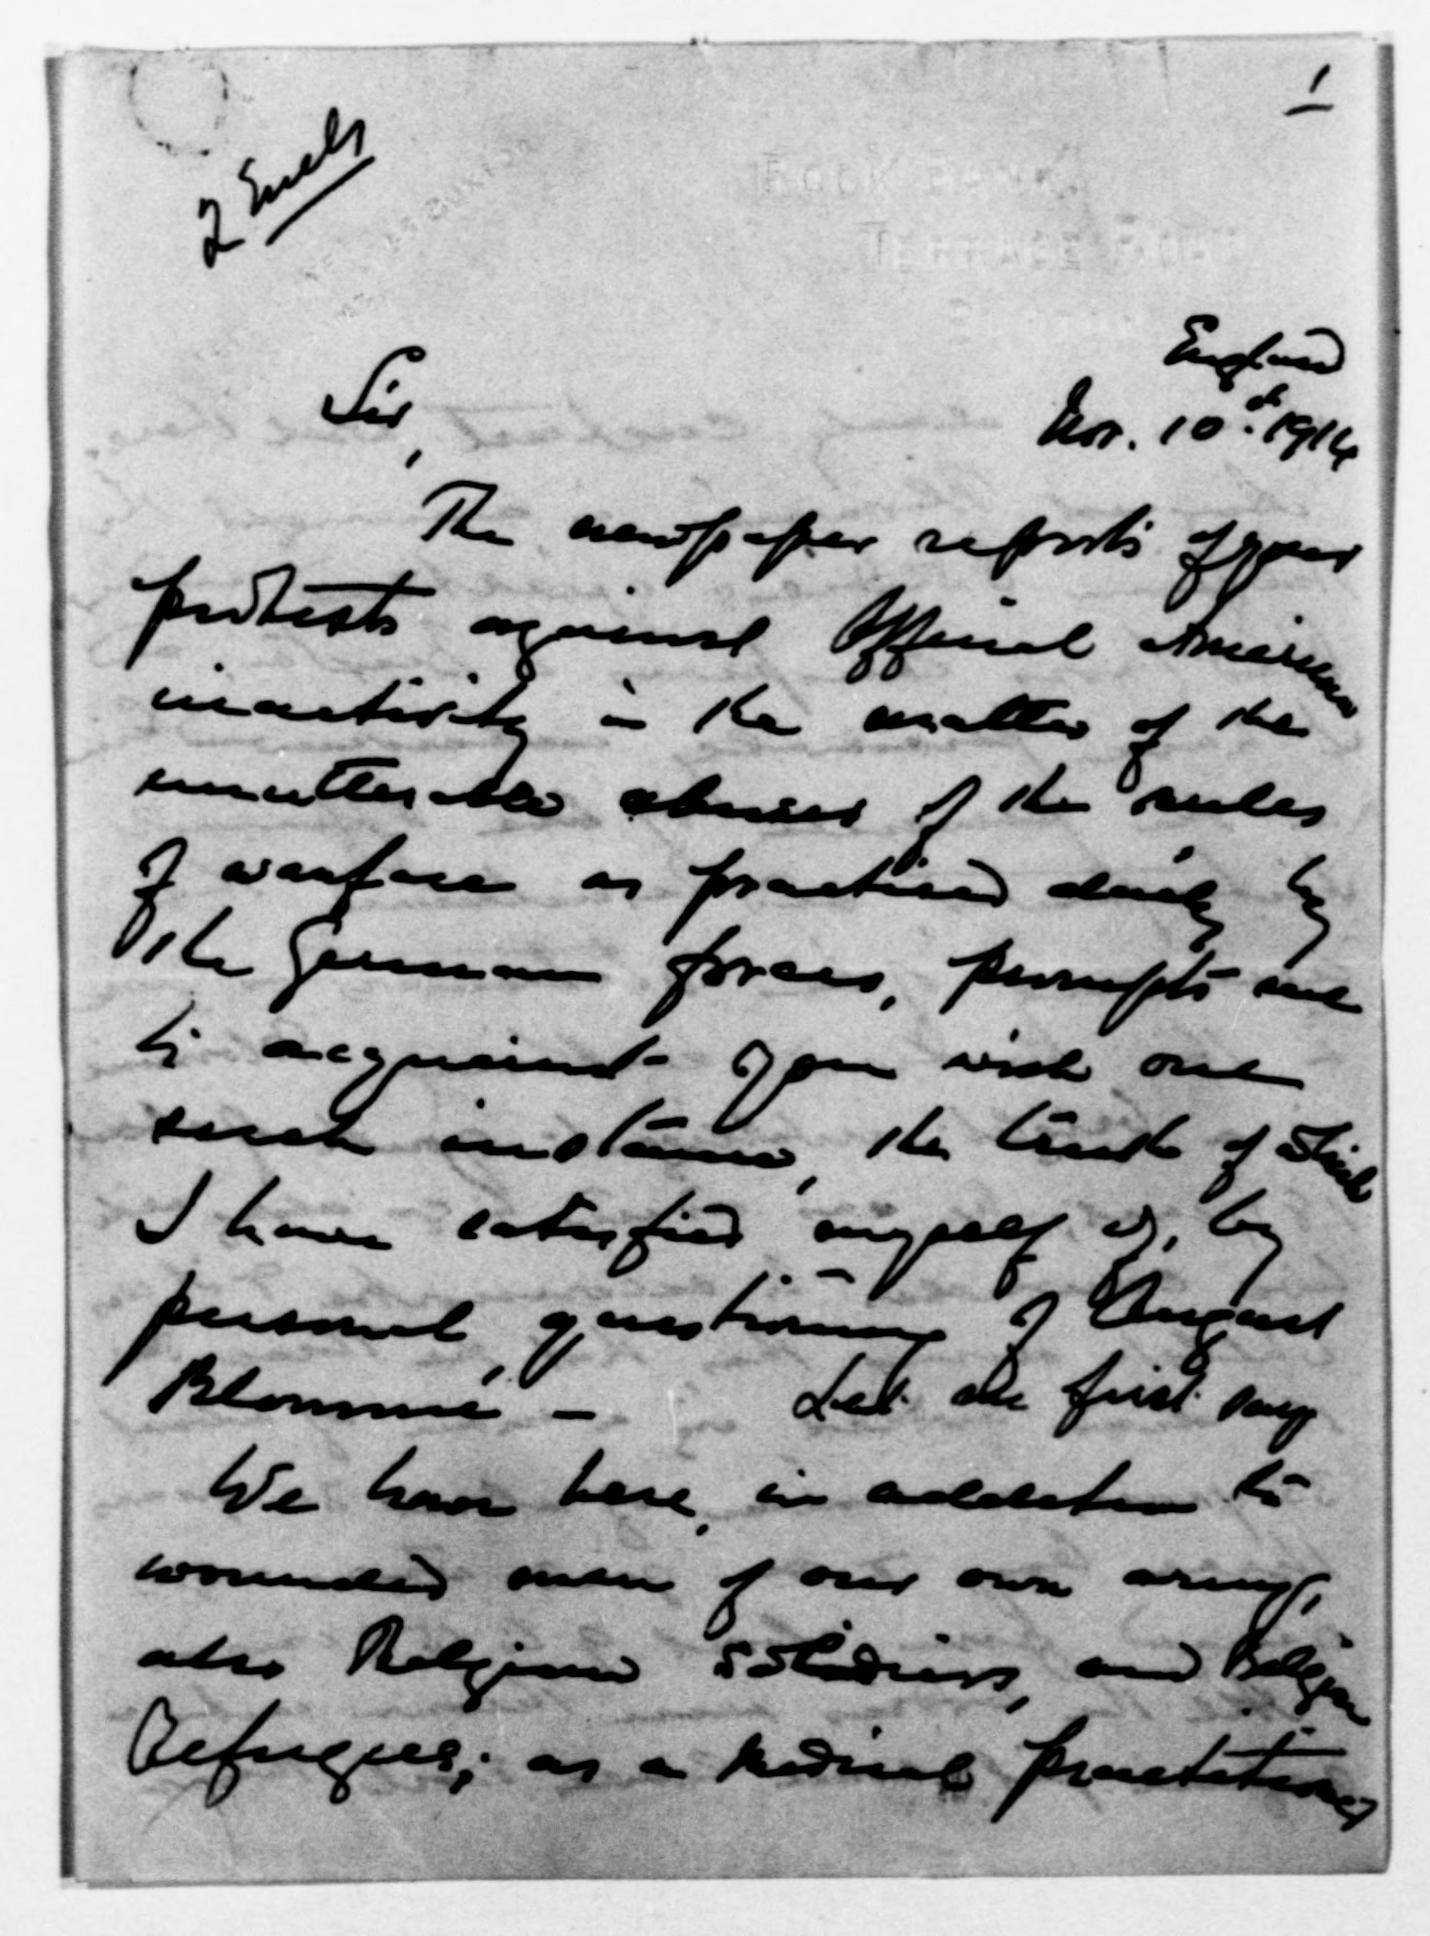 1
2 Encls
ROCK BANK,
TERRACE ROAD
BUXTON
England
Nov. 10th. 1914
Sir,
The newspaper reports of your
protests against Official American
inactivity in the matter of the
unutterable abuses of the rules
of warfare as practised daily by
the German forces, prompts me
to acquaint you with one
such instance, the truth of which
I have satisfied myself of, by
personal questioning of August
Blommé — Let me first say
We have here, in addition to
wounded men of our own army,
also Belgian Soldiers, and Belgian
Refugees; as a Medical practitioner